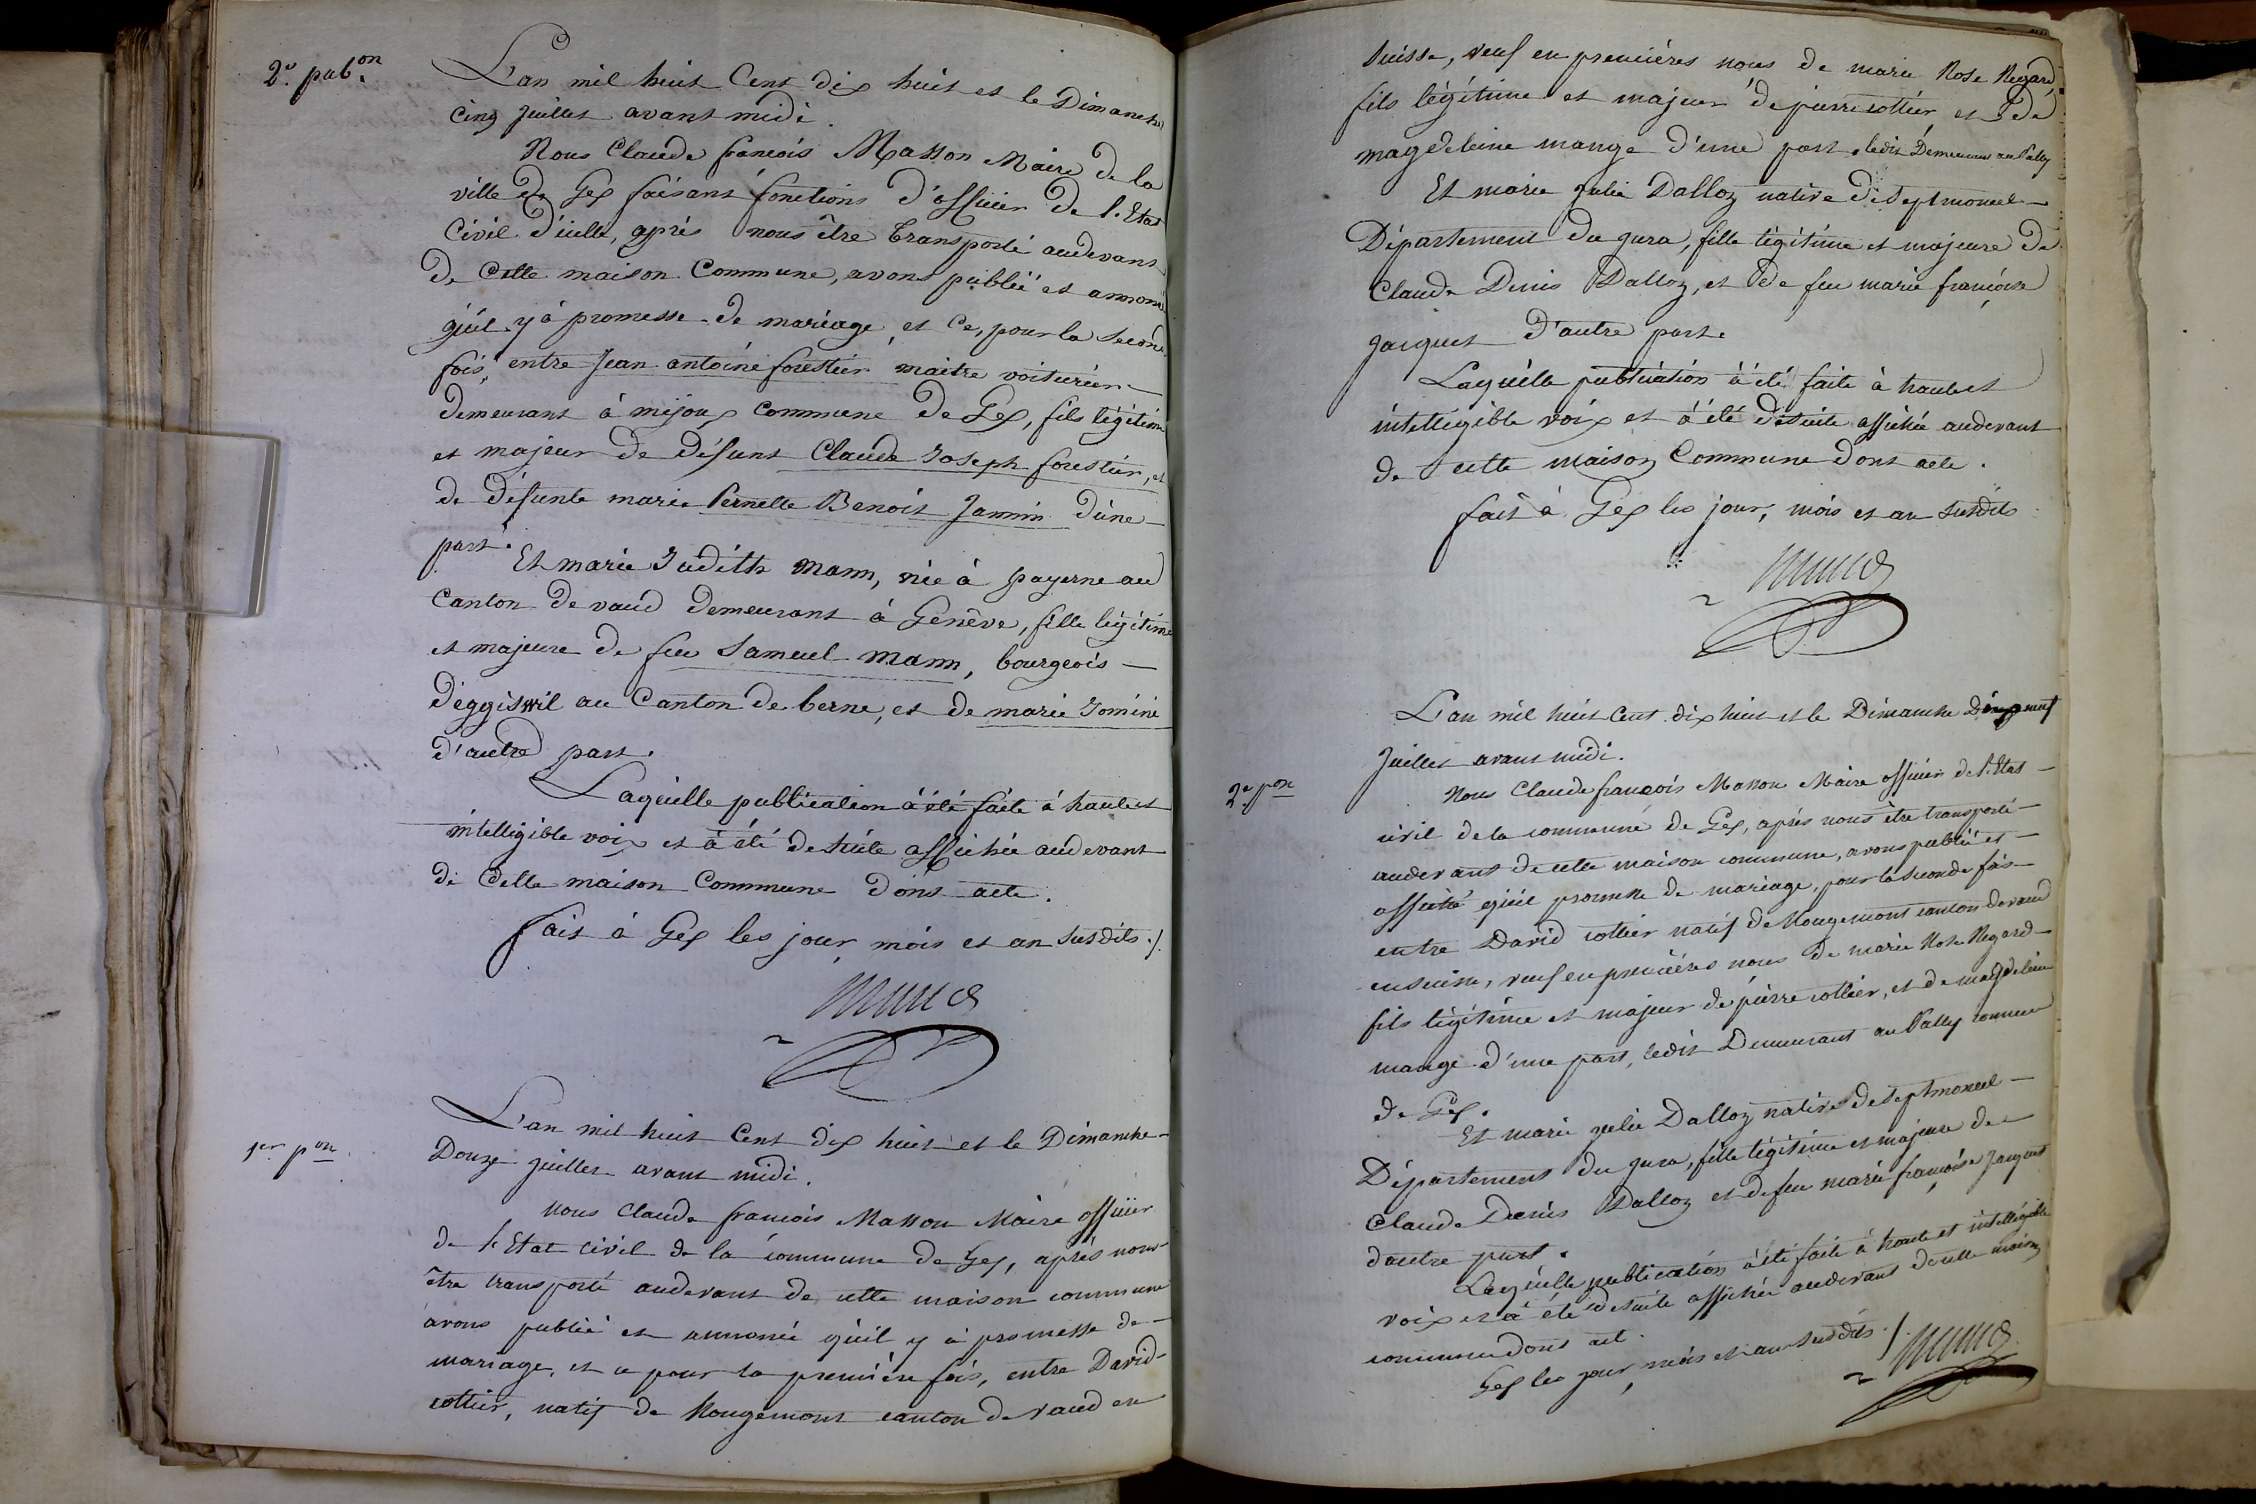 2.e pub.on
L'an mil huit Cent dix huit et le Dimanche
cinq juillet avant midi.
Nous Claude françois Masson Maire de la
ville de Gex faisant fonctions d'officier de l'Etat
Civil d'icelle, après nous être transporté audevant
de Cette maison Commune, avons publié et annoncé
qu'il y à promesse de mariage, et Ce, pour la seconde
fois, entre Jean antoine forestier maitre voiturier
demeurant à mijoux commune de Gex, fils légitime
et majeur de défunt Claude Joseph forestier, et
de défunte marie Pernette Benoit Jannin d'une
part.
Et marie Judith Mann, née à payerne au
Canton de vaud demeurant à Genêve, fille légitime
et majeure de feu Samuel Mann, bourgeois
d'eggiswil au Canton de berne, et de marie Jomini
d'autre part.
Laquelle publication à été faite à haute et
intelligible voix et à été de suite affichée audevant
de Cette maison Commune dont acte.
fait à Gex les jour, mois et an susdits ./.
1.er p.on
L'an mil huit Cent dix huit et le Dimanche
Douze juillet avant midi.
Nous Claude françois Masson Maire officier
de l'Etat civil de la commune de Gex, après nous
être transporté audevant de cette maison commune
avons publié et annoncé qu'il y à promesse de
mariage, et ce pour la première fois, entre David
cottier, natif de Rougemont canton de vaud en
suisse, veuf en premières noces de marie Rose Regard,
fils légitime et majeur de pierre cottier, et de
magdeleine mange d'une part, ledit Demeurant au Pailly
Et marie julie Dalloz native de Septmoncel
Département du jura, fille légitime et majeure de
Claude Denis Dalloz, et de feu marie françoise
jacquet d'autre part.
Laquelle publication à été faite à haute et
intelligible voix et à été de suite affichée audevant
de cette maison Commune dont acte.
fait à Gex les jour, mois et an susdits
L'an mil huit Cent dix huit et le Dimanche Dix neuf
juillet avant midi.
2.e p.on
Nous Claude françois Masson Maire officier de l'Etat
civil de la commune de Gex, après nous être transporté
audevant de cette maison commune, avons publié et
affiché qu'il promesse de mariage, pour la seconde fois
entre David cottier natif de Rougemont canton de vaud
en suisse, veuf en premières noces de marie Rose Regard
fils légitime et majeur de pierre cottier, et de magdeleine
mange d'une part, ledit Demeurant au Pailly commune
de Gex.
Et marie julie Dalloz native de Septmoncel
Département du jura, fille légitime et majeure de
Claude Denis Dalloz et de feu marie françoise jacquet
d'autre part.
Laquelle publication à été faite à haute et intelligible
voix et à été de suite affichée audevant de cette maison
commune dont act.
Gex les jour, mois et an susdits ./